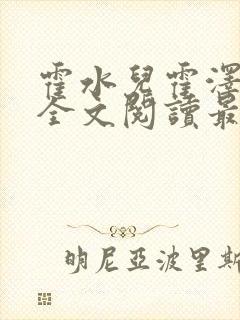 霍水兒霍澤
全文閱讀最
明尼亞波里斯